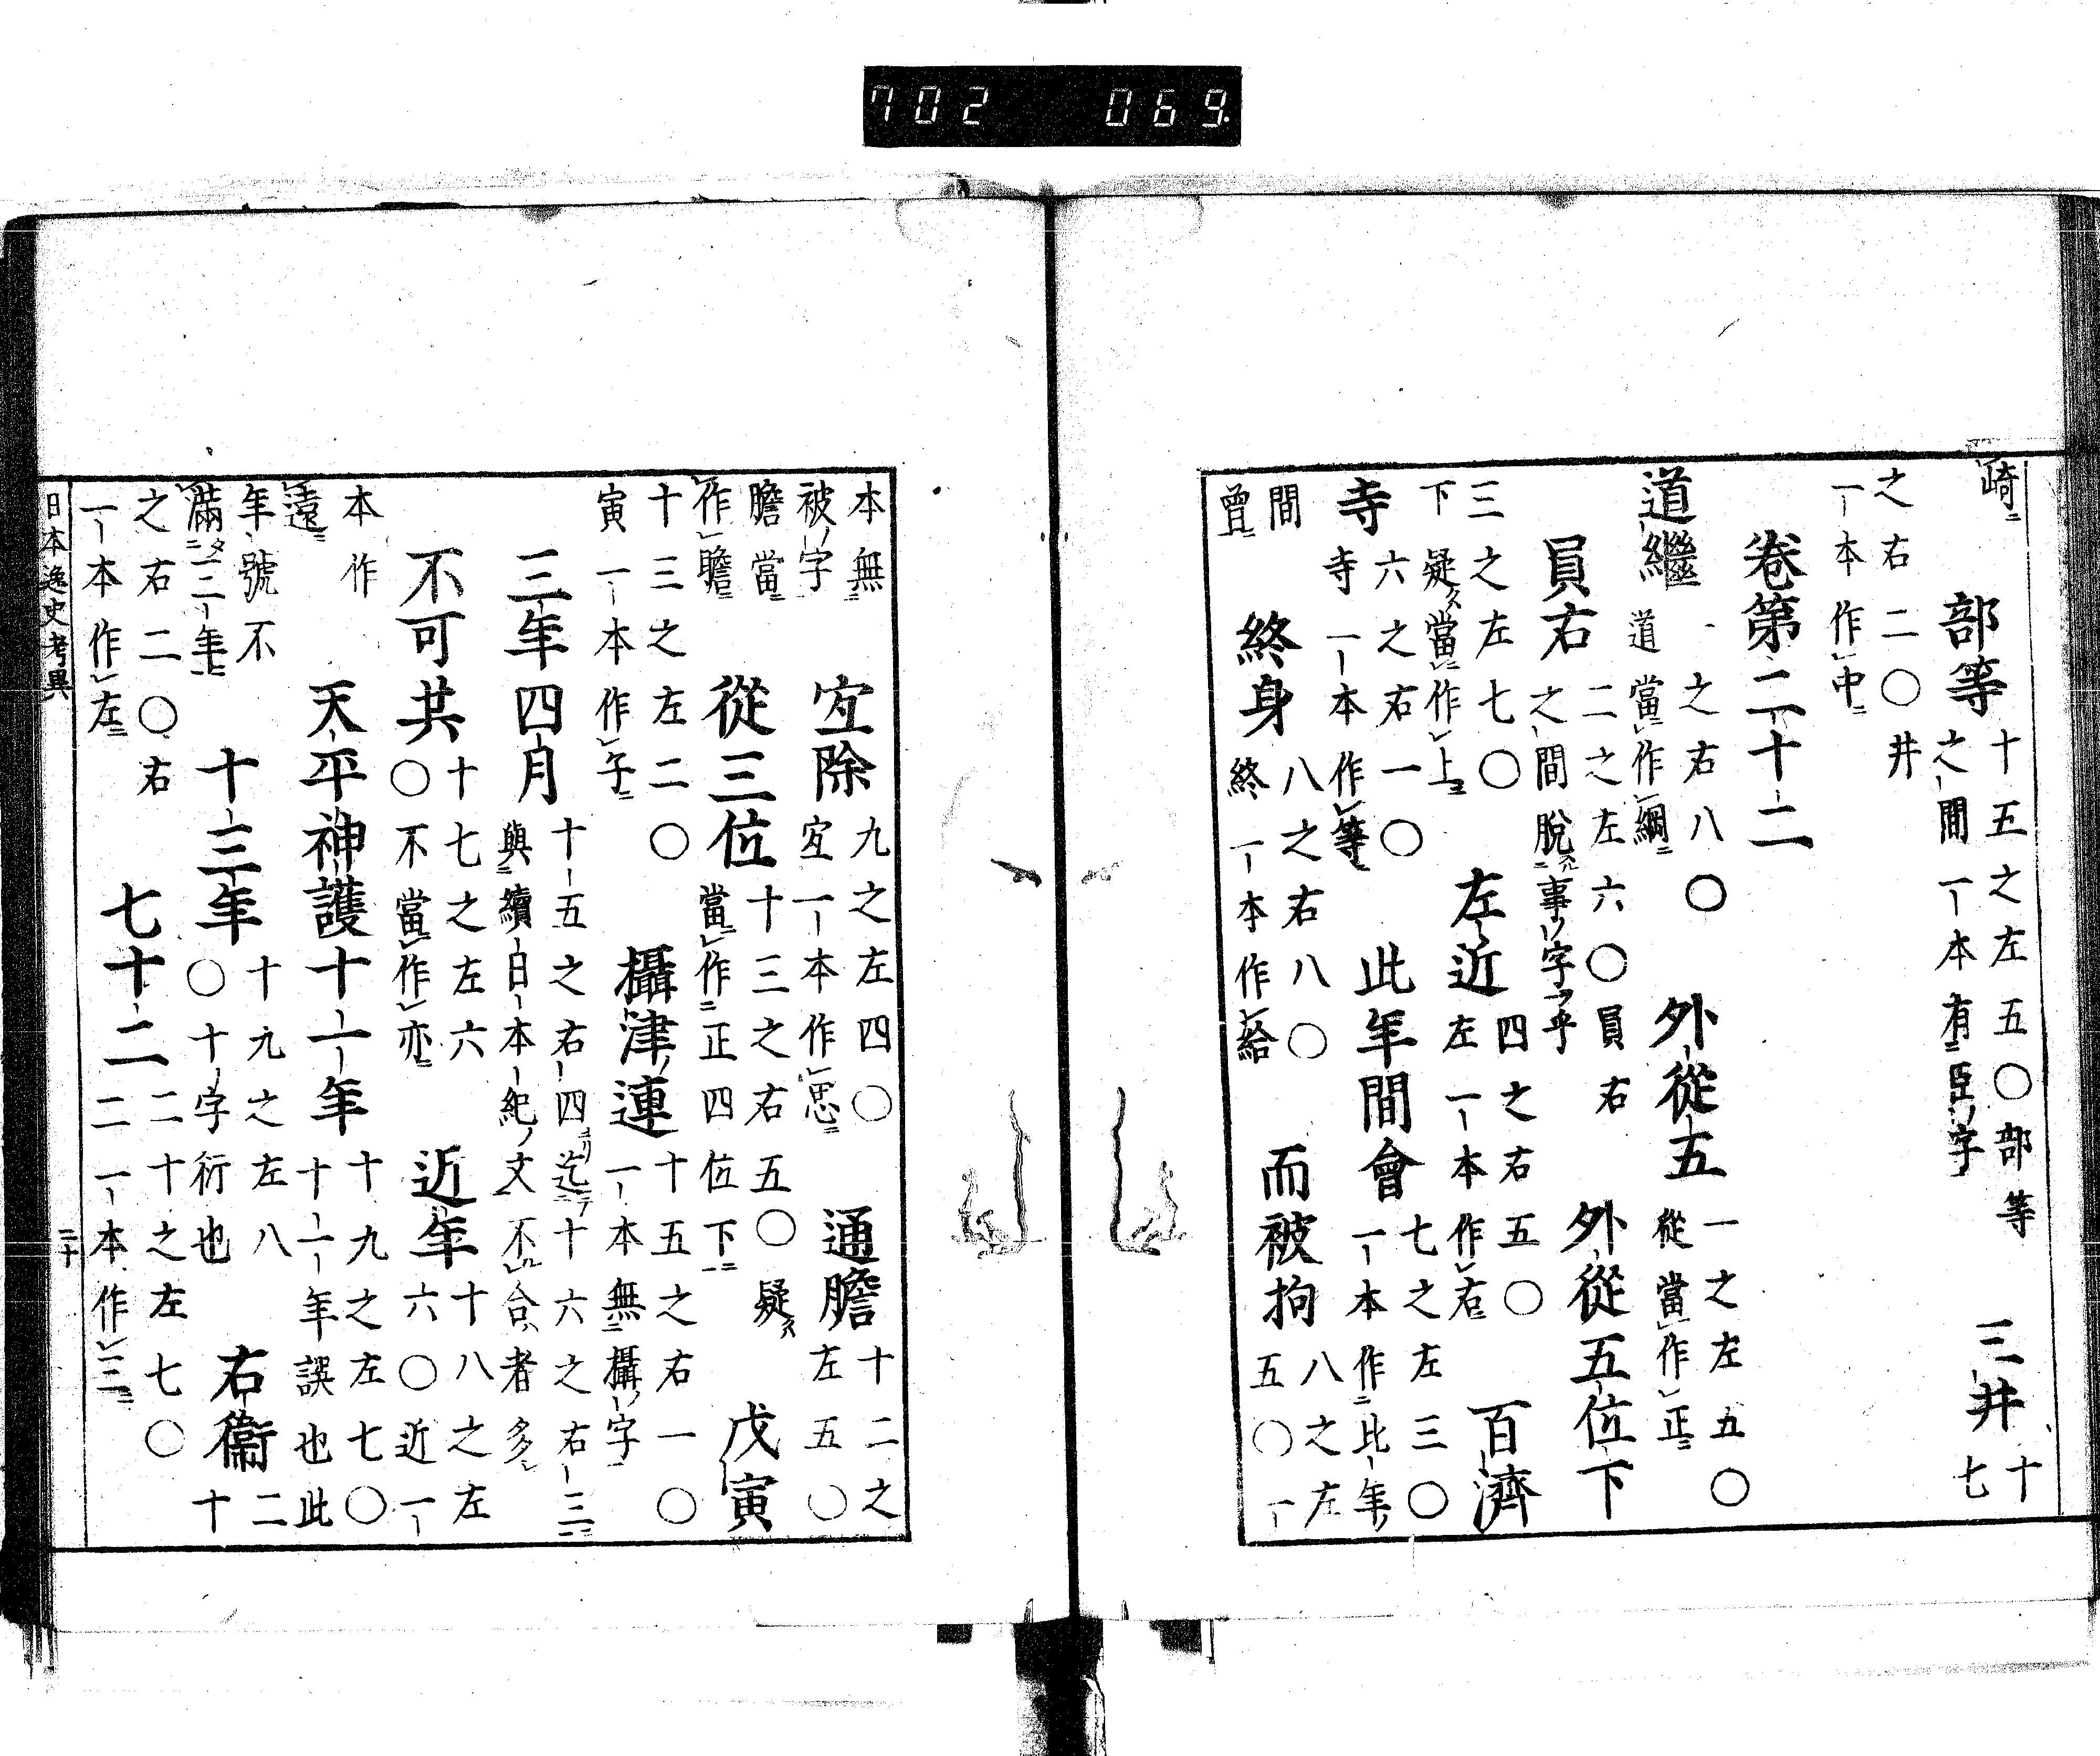 崎 部等 十五之左五〇部等之間一本有臣字 三井 十七
之右二〇井一本作中
卷第二十二
道繼 之右八〇道當作綱 外從五 一之左五〇從當作正
員右 二之左六〇員右之間脫事字乎 外從五位下
三之左七〇下疑當作上 左近 四之右五〇左一本作右 百濟
寺 六之右一〇寺一本作等 此年間會 七之左三〇一本作比年
間曾 終身 八之右八〇終一本作給 而被拘 八之左五〇一
本無被字 宐除 九之左四〇宐一本作 通膽 十二之左五〇
膽當作瞻 從三位 十三之右五〇疑當作正四位下 戊寅
十三之左二〇寅一本作午 攝津連 十五之右一〇一本無攝字
三年四月 十五之右四迄十六之右三與續日本紀文不合者多
不可共 十七之左六〇不當作亦 近年 十八之左六〇近一
本作遠 天平神護十一年 十九之左七〇十一年誤也此
年號不滿二年 十三年 十九之左八〇十字衍也 右衞 二十
之右二〇右一本作左 七十二 二十之左七〇二一本作三
日本逸史考異 二十
702 069